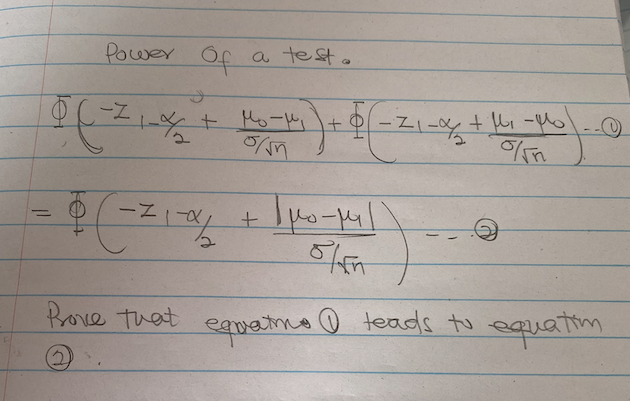 Power Of a test.
Φ(-Z1-α/2 + μ0-μ1/σ/√n) + Φ(-Z1-α/2 + μ1-μ0/σ/√n) --- ①
= Φ(-Z1-α/2 + |μ0-μ1|/σ/√n) --- ②
Prove that equation ① leads to equation
②.